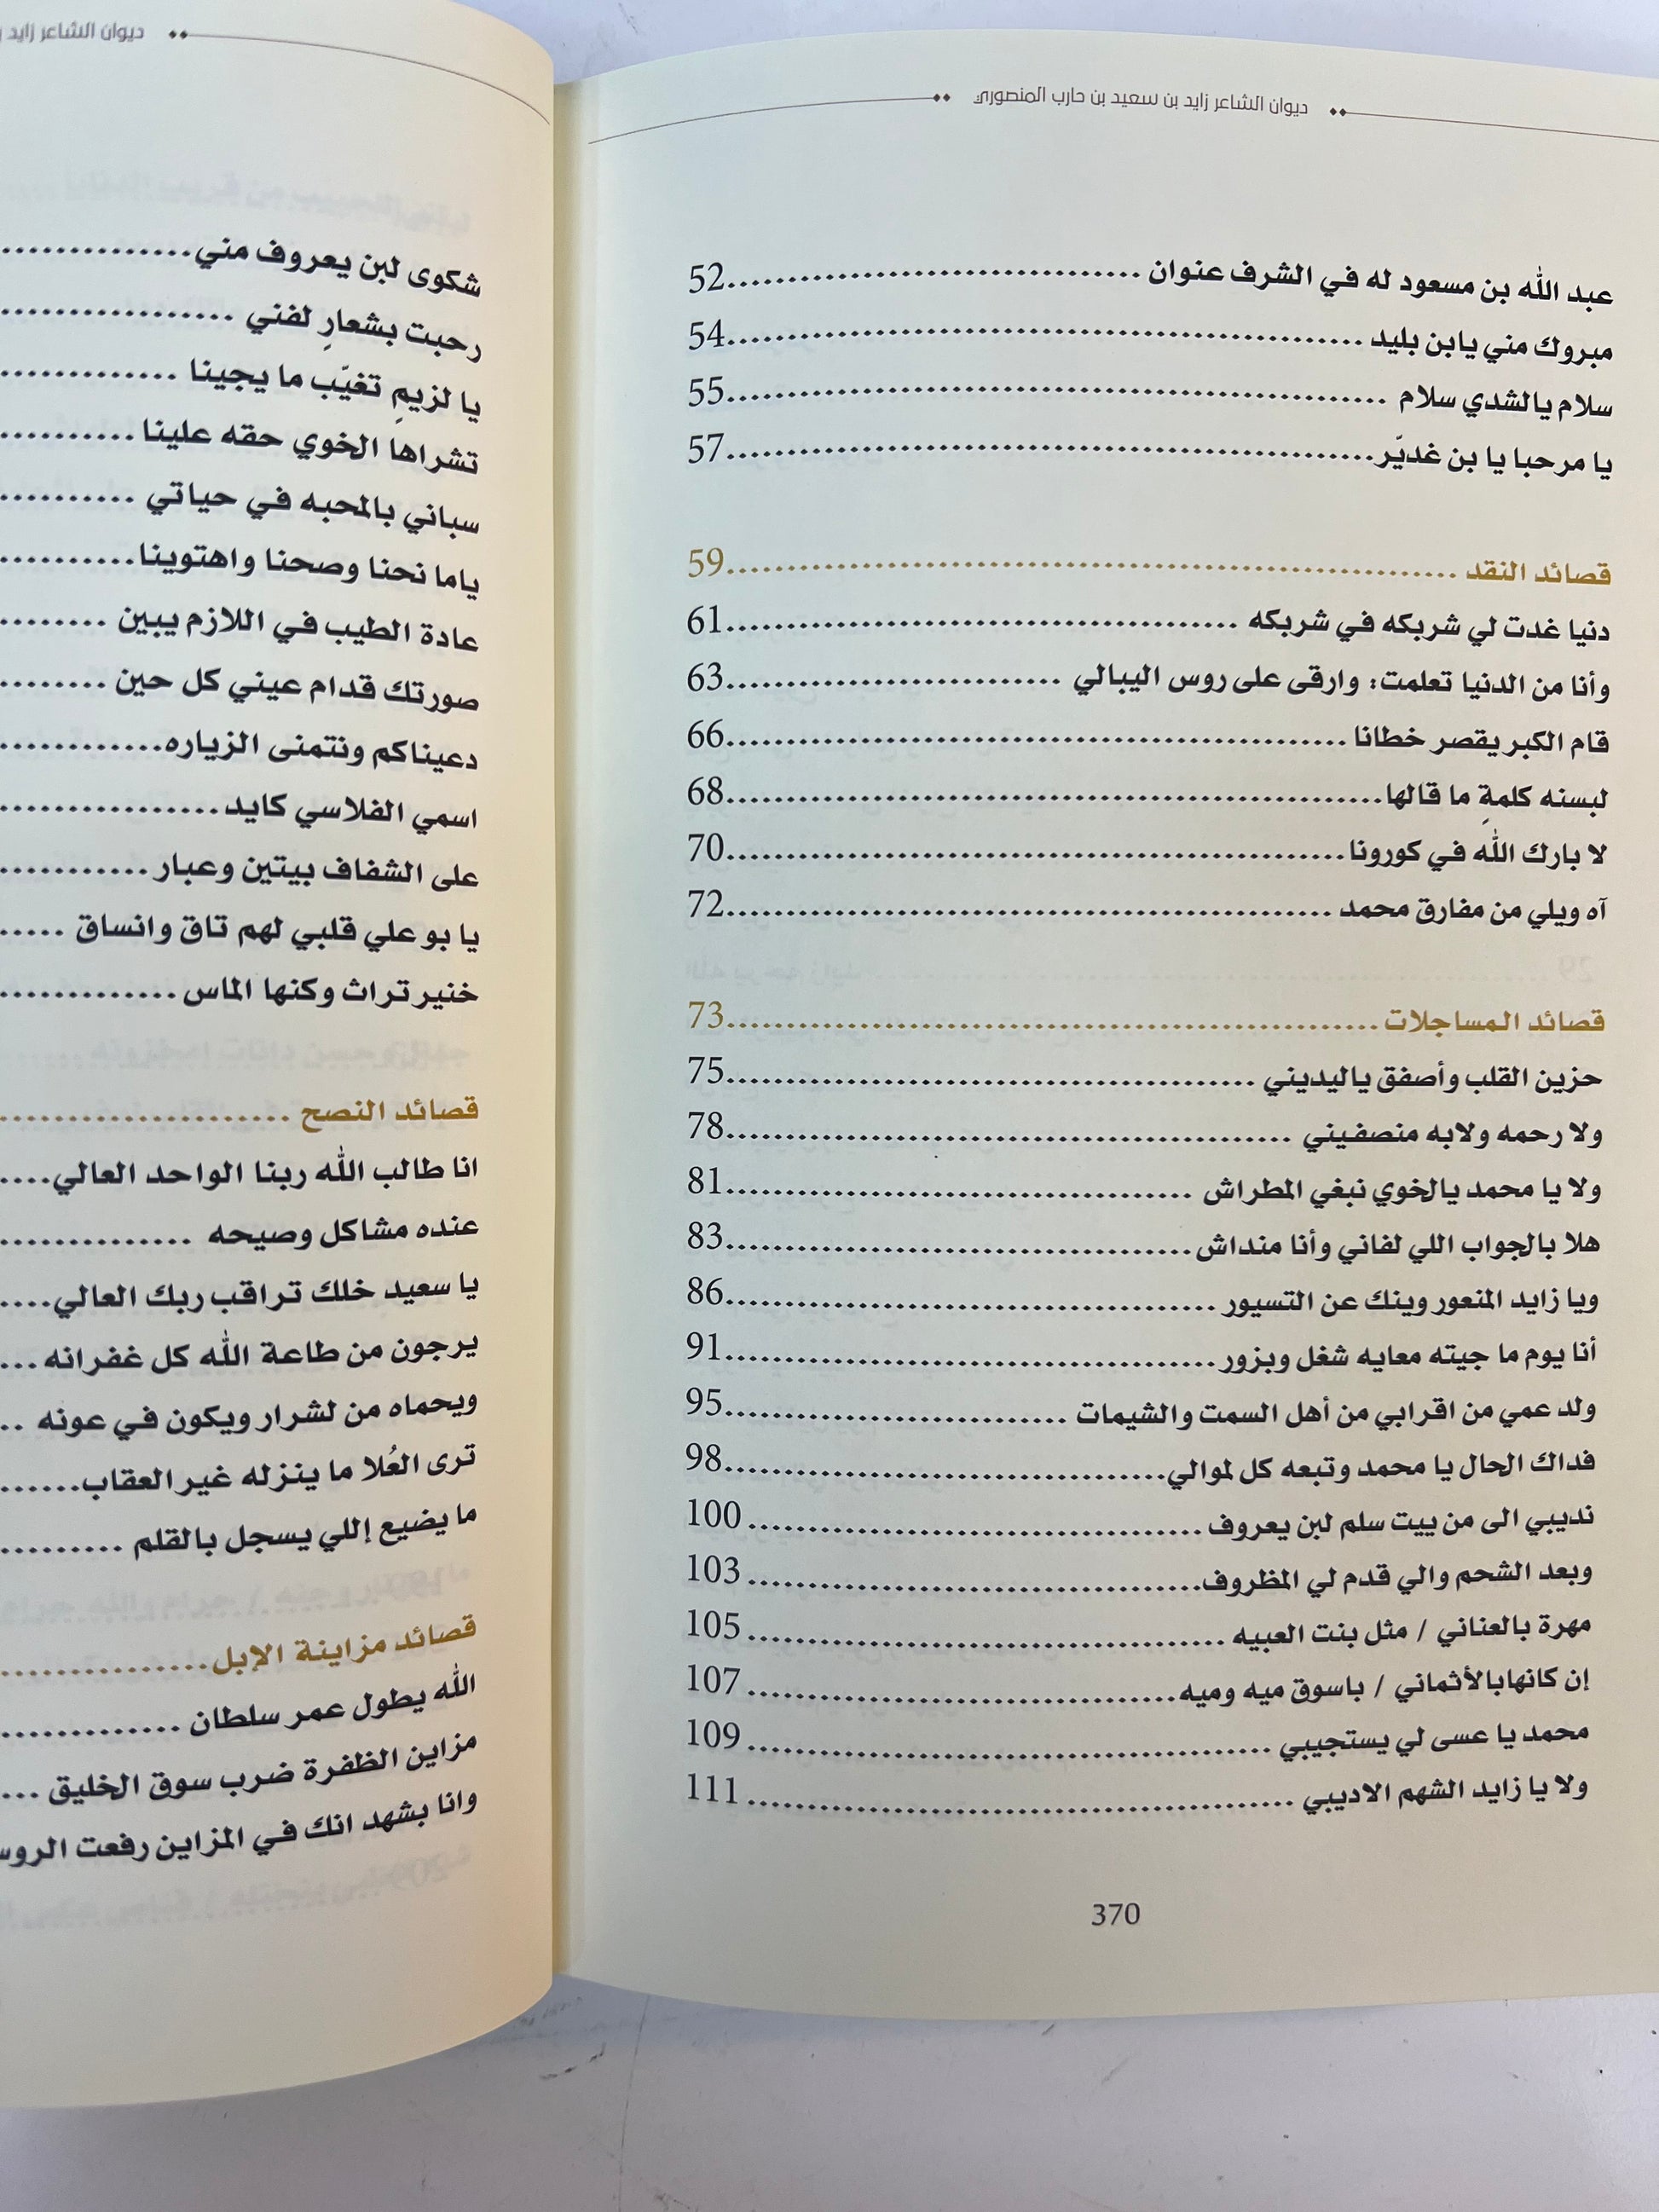 ديوان الشاعر زايد بن سعيد بن حارب المنصوري
عبد الله بن مسعود له في الشرف عنوان ........ 52
مبروك مني يابن بليد ........ 54
سلام يالشدي سلام ........ 55
يا مرحبا يا بن غديّر ........ 57
قصائد النقد ........ 59
دنيا غدت لي شربكه في شربكه ........ 61
وأنا من الدنيا تعلمت: وارقى على روس اليبالي ........ 63
قام الكبر يقصر خطانا ........ 66
لبسنه كلمةٍ ما قالها ........ 68
لا بارك الله في كورونا ........ 70
آه ويلي من مفارق محمد ........ 72
قصائد المساجلات ........ 73
حزين القلب وأصفق ياليديني ........ 75
ولا رحمه ولابه منصفيني ........ 78
ولا يا محمد يالخوي نبغي المطراش ........ 81
هلا بالجواب اللي لفاني وأنا منداش ........ 83
ويا زايد المنعور وينك عن التسيور ........ 86
أنا يوم ما جيته معايه شغل وبزور ........ 91
ولد عمي من اقرابي من أهل السمت والشيمات ........ 95
فداك الحال يا محمد وتبعه كل لموالي ........ 98
نديبي الى من ييت سلم لبن يعروف ........ 100
وبعد الشحم والي قدم لي المظروف ........ 103
مهرة بالعناني / مثل بنت العبيه ........ 105
إن كانهابالأثماني / باسوق ميه وميه ........ 107
محمد يا عسى لي يستجيبي ........ 109
ولا يا زايد الشهم الاديبي ........ 111
370
ديوان الشاعر زايد
شكوى لبن يعروف مني ........
رحبت بشعارٍ لفني ........
يا لزيمٍ تغيّب ما يجينا ........
تشراها الخوي حقه علينا ........
سباني بالمحبه في حياتي ........
ياما نحنا وصحنا واهتوينا ........
عادة الطيب في اللازم يبين ........
صورتك قدام عيني كل حين ........
دعيناكم ونتمنى الزياره ........
اسمي الفلاسي كايد ........
على الشفاف بيتين وعبار ........
يا بو علي قلبي لهم تاق وانساق ........
خنير تراث وكنها الماس ........
قصائد النصح ........
انا طالب الله ربنا الواحد العالي ........
عنده مشاكل وصيحه ........
يا سعيد خلك تراقب ربك العالي ........
يرجون من طاعة الله كل غفرانه ...
ويحماه من لشرار ويكون في عونه ..
ترى العُلا ما ينزله غير العقاب ........
ما يضيع إللي يسجل بالقلم ........
قصائد مزاينة الإبل ........
الله يطول عمر سلطان ........
مزاين الظفرة ضرب سوق الخليق ...
وانا بشهد انك في المزاين رفعت